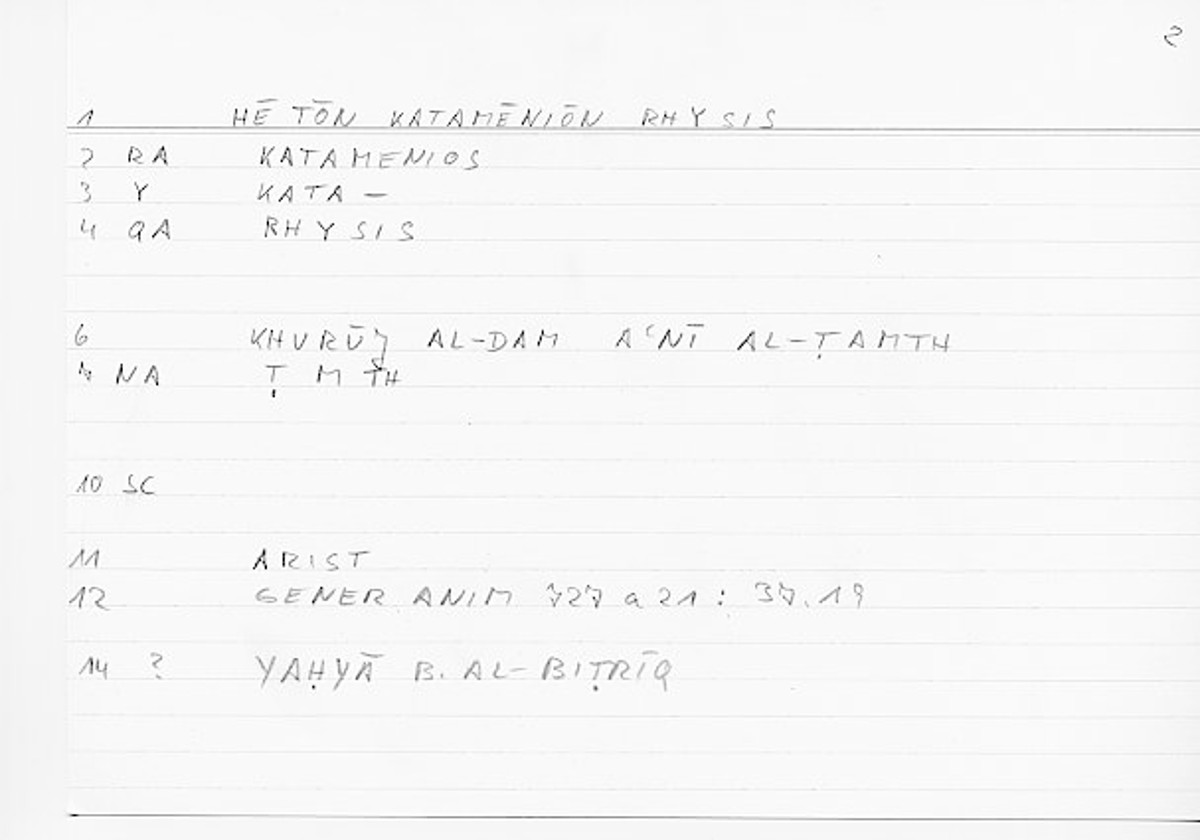 2
1 HĒ TŌN KATAMĒNIŌN RHYSIS
2 RA KATAMENIOS
3 Y KATA –
4 QA RHYSIS
6 KHURŪJ AL-DAM AʿNĪ AL-ṬAMTH
7 NA Ṭ M TH
10 SC
11 ARIST
12 GENER ANIM 727 a 21 : 37.19
14 ? YAḤYĀ B. AL-BIṬRĪQ